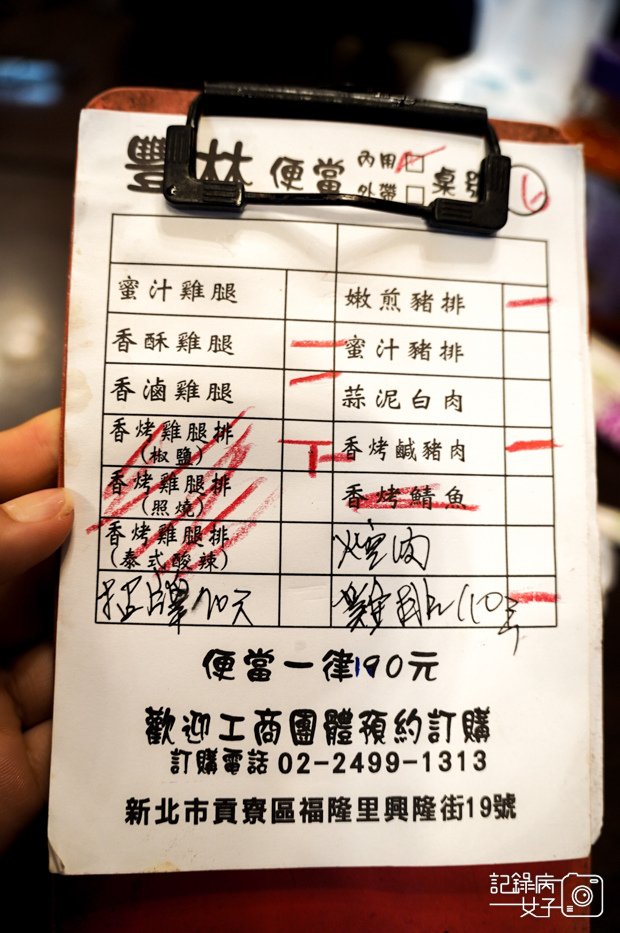 豐林 便當 內用 桌號
外帶
蜜汁雞腿 嫩煎豬排
香酥雞腿 蜜汁豬排
香滷雞腿 蒜泥白肉
香烤雞腿排 香烤鹹豬肉
(椒鹽)
香烤雞腿排 香烤鯖魚
(照燒)
香烤雞腿排
(泰式酸辣)
招牌 雞
便當一律
歡迎工商團體預約訂購
訂購電話 02-2499-1313
新北市貢寮區福隆里興隆街19號
記錄病
女子